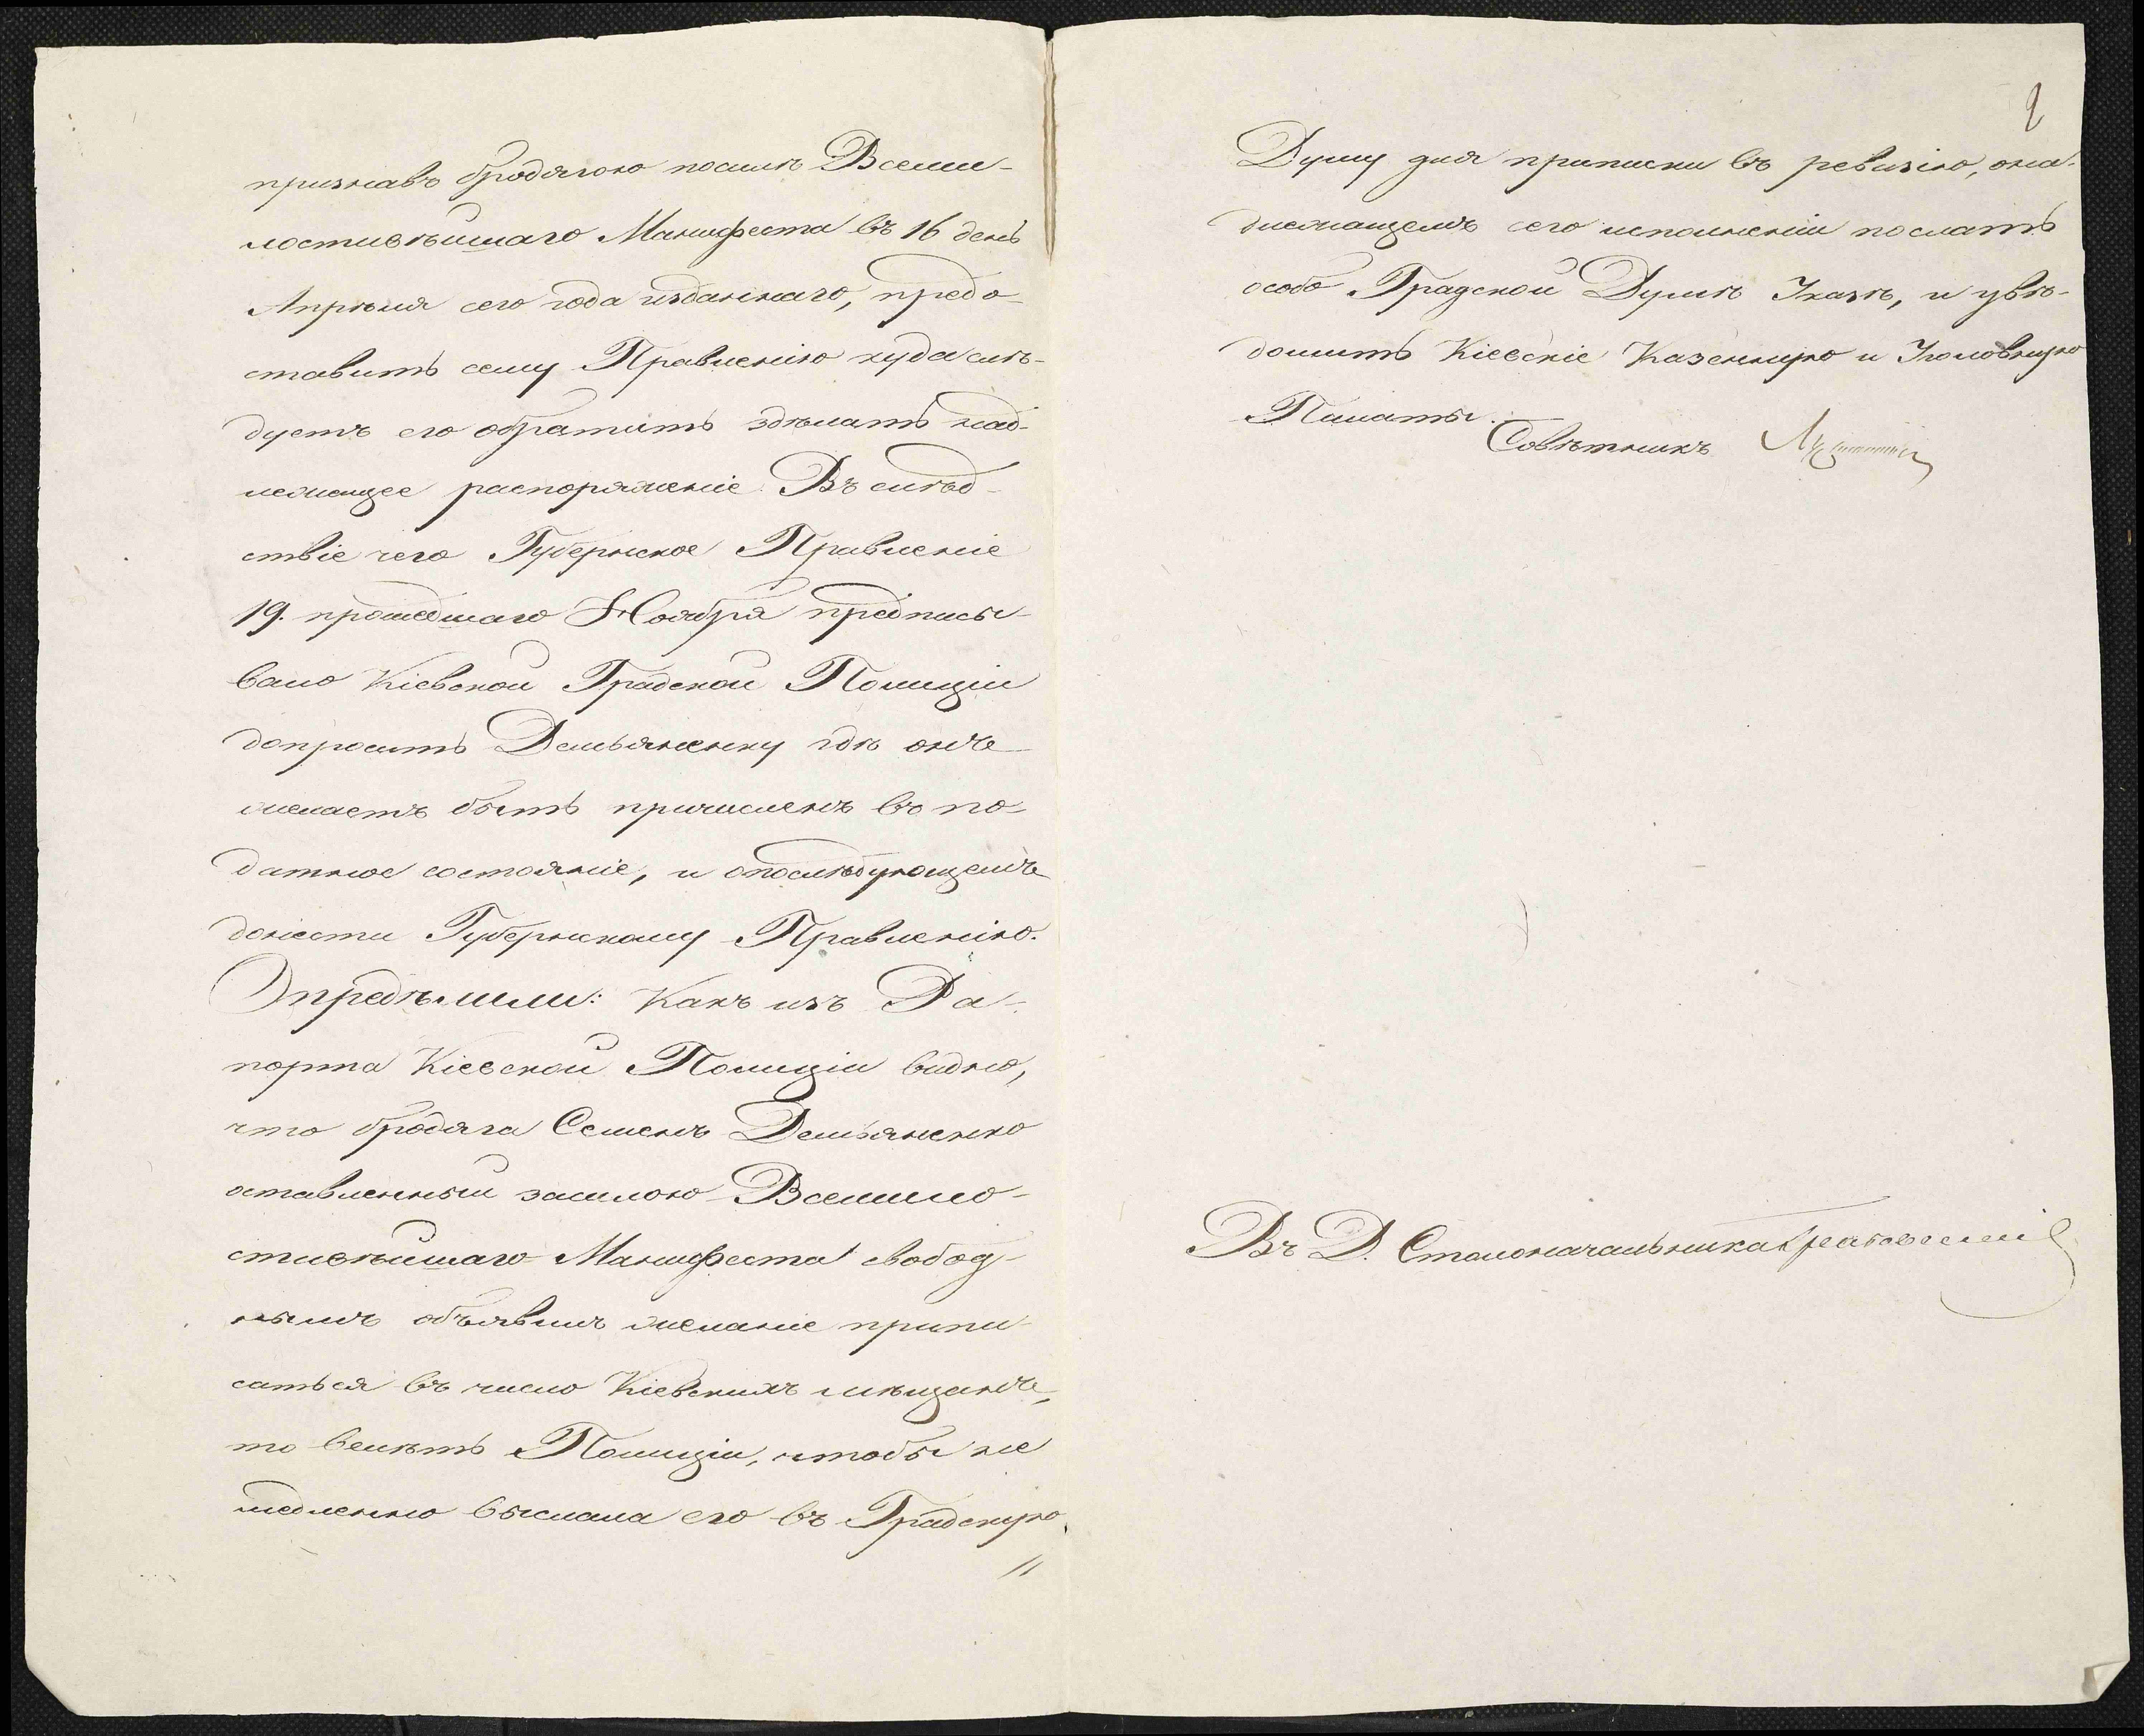 признавъ бродягою посилѣ Всеми-
лостивѣйшаго Манифеста въ 16 день
Апрѣля сего года изданнаго, предо-
ставить сему Правленію куда слѣ-
дуетъ его обратить здѣлать над-
лежащее распоряженіе. Въ слѣд-
ствіе чего Губернское Правленіе
19. прошедшаго Ноября предписы-
вало Кіевской Градской Полиціи
допросить Демьяненку гдѣ онъ
желаетъ быть причисленъ въ по-
датное состояніе, и опослѣдующемъ
донести Губернскому Правленію.
Опредѣлили: Какъ изъ Ра-
порта Кіевской Полиціи видно,
что бродяга Семенъ Демьяненко
оставленный засилою Всемило-
стивѣйшаго Манифеста свобод-
нымъ объявилъ желаніе припи-
саться въ число Кіевскихъ мѣщанъ,
то велѣть Полиціи, чтобы не
медленно выслала его въ Градскую
//
2
Думу для приписки въ ревизію, она-
длежащемъ сего исполненіи послать
особо Градской Думѣ Указъ, и увѣ-
домить Кіевскіе Казенную и Уголовную
Палаты.
Совѣтникъ
Въ Д. Столоначальника